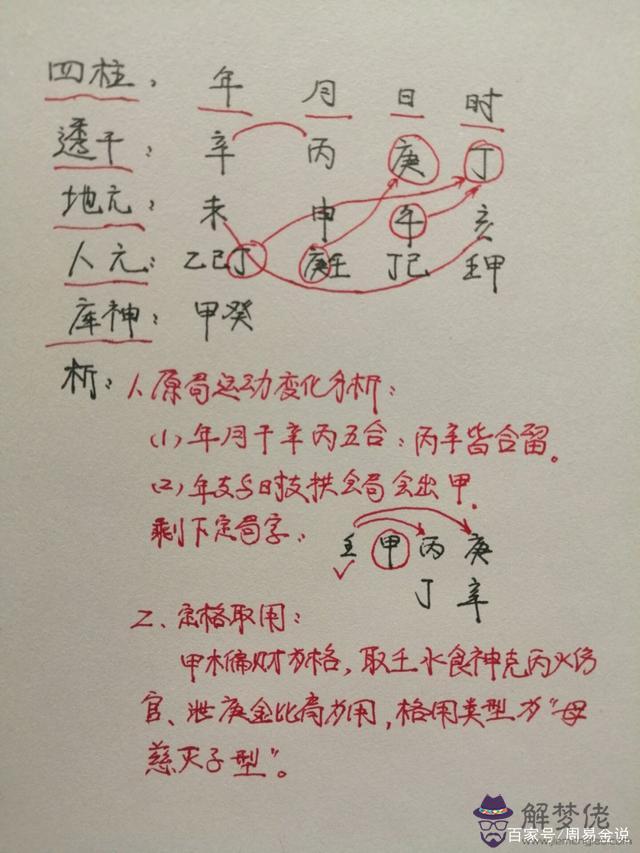 四柱: 年 月 日 时
透干: 辛 丙 庚 丁
地元: 未 申 午 亥
人元: 乙己丁 庚壬 丁己 壬甲
库神: 甲癸
析: 1、原局运动变化分析:
(1)年月干辛丙五合:丙辛皆合留。
(2)年支与时支拱会局会出甲.
剩下定局字: 壬 甲 丙 庚
丁 辛
2、定格取用:
甲木偏财为格,取壬水食神克丙火伤
官、泄庚金比肩为用,格用类型为“母
慈灭子型”。
解梦佬
百家号/周易金说
www.jiemenglao.com